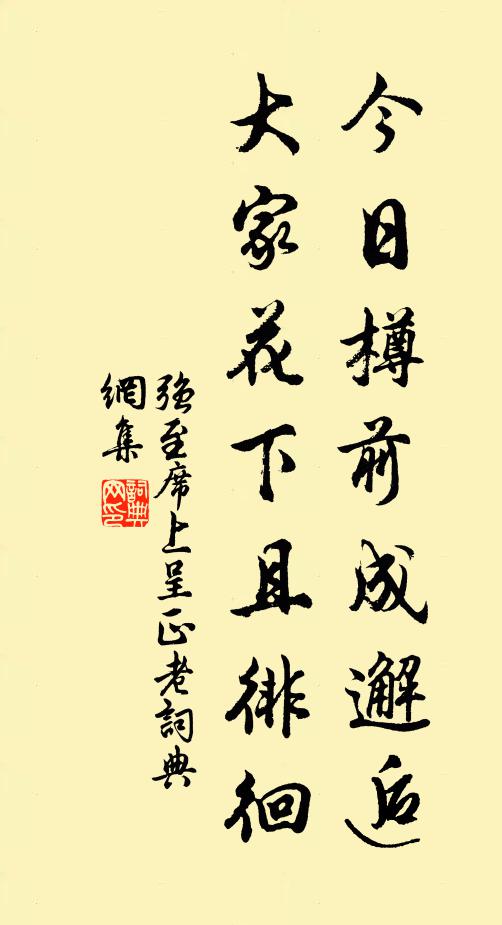 今日樽前成邂逅
大家花下且徘徊
強至席上呈正老詞典
網集
詞典
网印